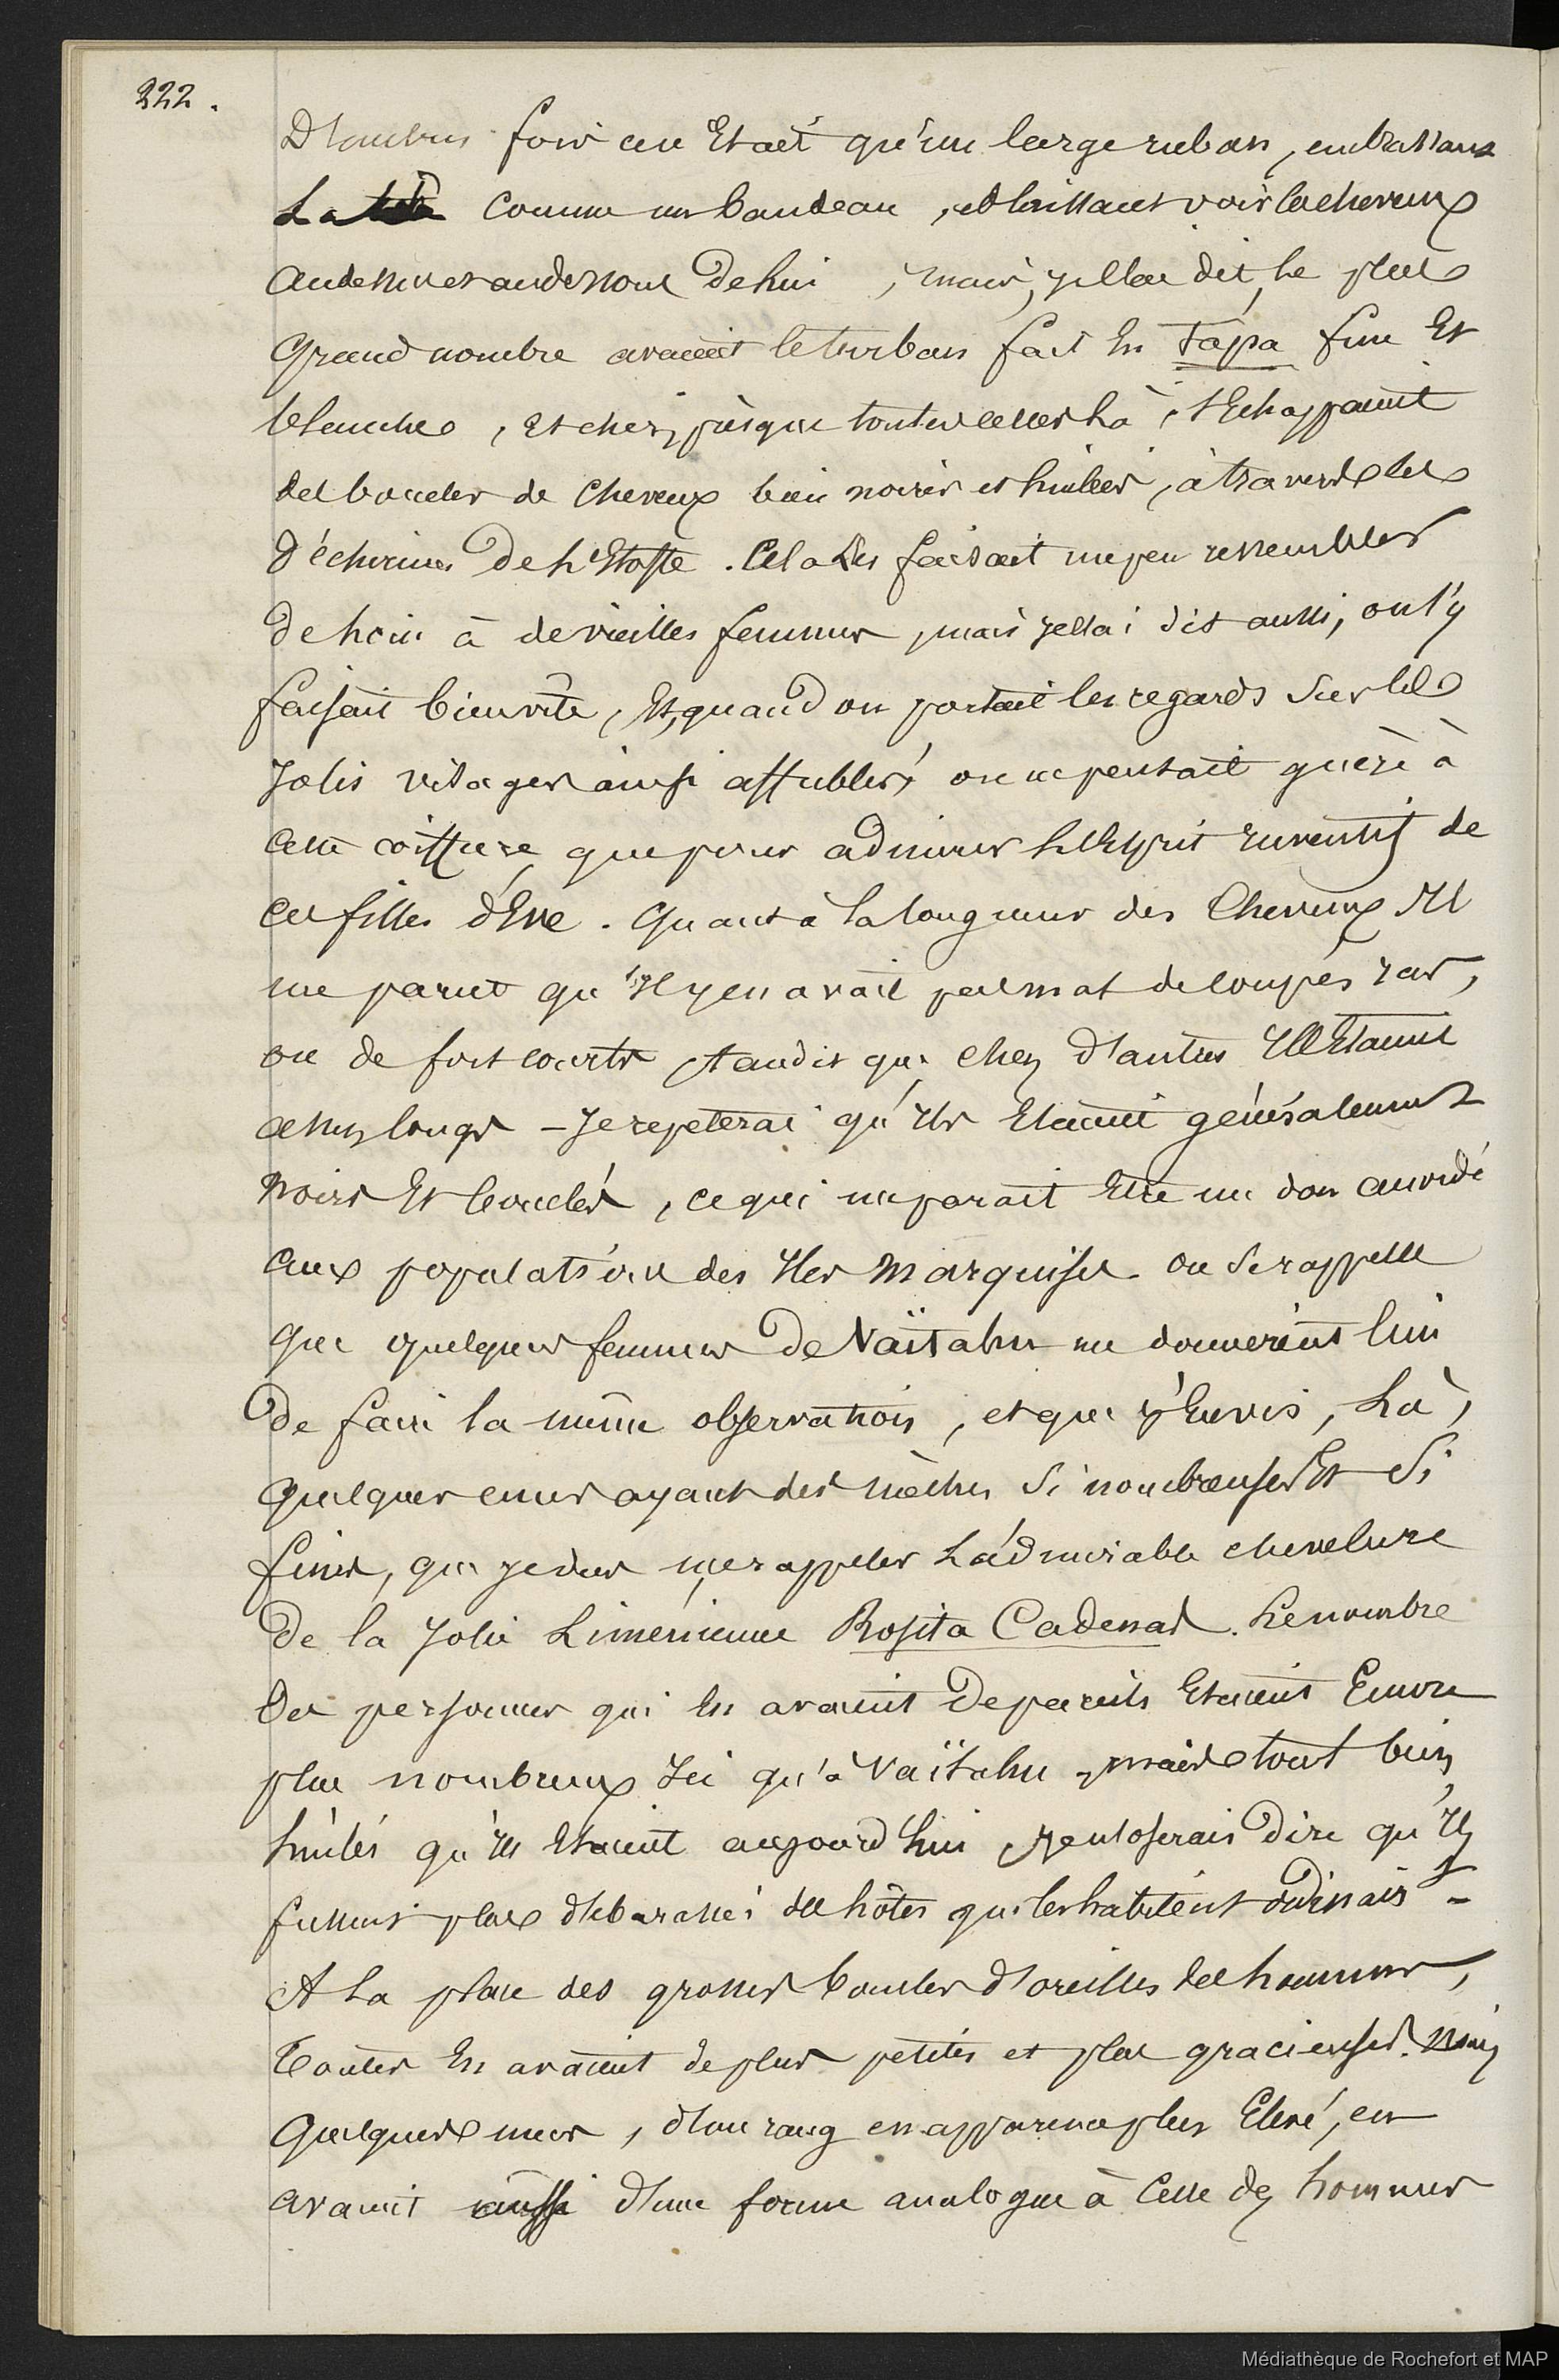 222.
D'autres fois ce n'Etait qu'un large ruban, embrassant
La tête comme un bandeau, et laissant voir les cheveux
audessus et audessous de lui, mais, je l'ai dit, le plus
grand nombre avaient le turban fait En tapa fine Et
blanche, Et chez presque toutes celles là, s'Echappaient
des boucles de cheveux bien noires et huilées, à travers les
déchirures de l'Etoffe. Cela Les faisait un peu ressembler
de loin à de vieilles femmes, mais je l'ai dit aussi, on s'y
faisait bien vite, Et, quand on portait les regards sur les
Jolis visages ainsi affublés, on ne pensait guère à
cette coiffure que pour admirer L'Esprit inventif de
ces filles d'Eve. Quant à la longueur des Cheveux Il
me parut qu'Il y en avait pas mal de coupés ras,
ou de fort courts, tandis que chez d'autres Ils Etaient
assez longs - Je repeterai qu'Ils Etaient généralement
noirs Et bouclés, ce qui me parait Etre un don accordé
aux populations des Iles Marquises. On se rappelle
que quelques femmes de Vaïtahu me donnèrent lieu
de faire la même observation, et que j'En vis, Là,
quelques unes ayant des mèches si nombreuses Et si
fines, que je dus me rappeler L'admirable chevelure
De la Jolie Liménienne Rosita Cadenas. Le nombre
des personnes qui En avaient de pareils Etaient Encore
plus nombreux Ici qu'à Vaïtahu, mais tout bien
huilés qu'Ils Etaient aujourd'hui, je n'oserais dire qu'Ils
fussent plus débarassés des hôtes qui les habitent ordinairt -
A La place des grosses boucles d'oreilles des hommes,
toutes En avaient de plus petites et plus gracieuses. Mais
quelques unes, d'un rang en apparence plus Elevé, en
avaient aussi d'une forme analogue à Celle des hommes
Médiathèque de Rochefort et MAP